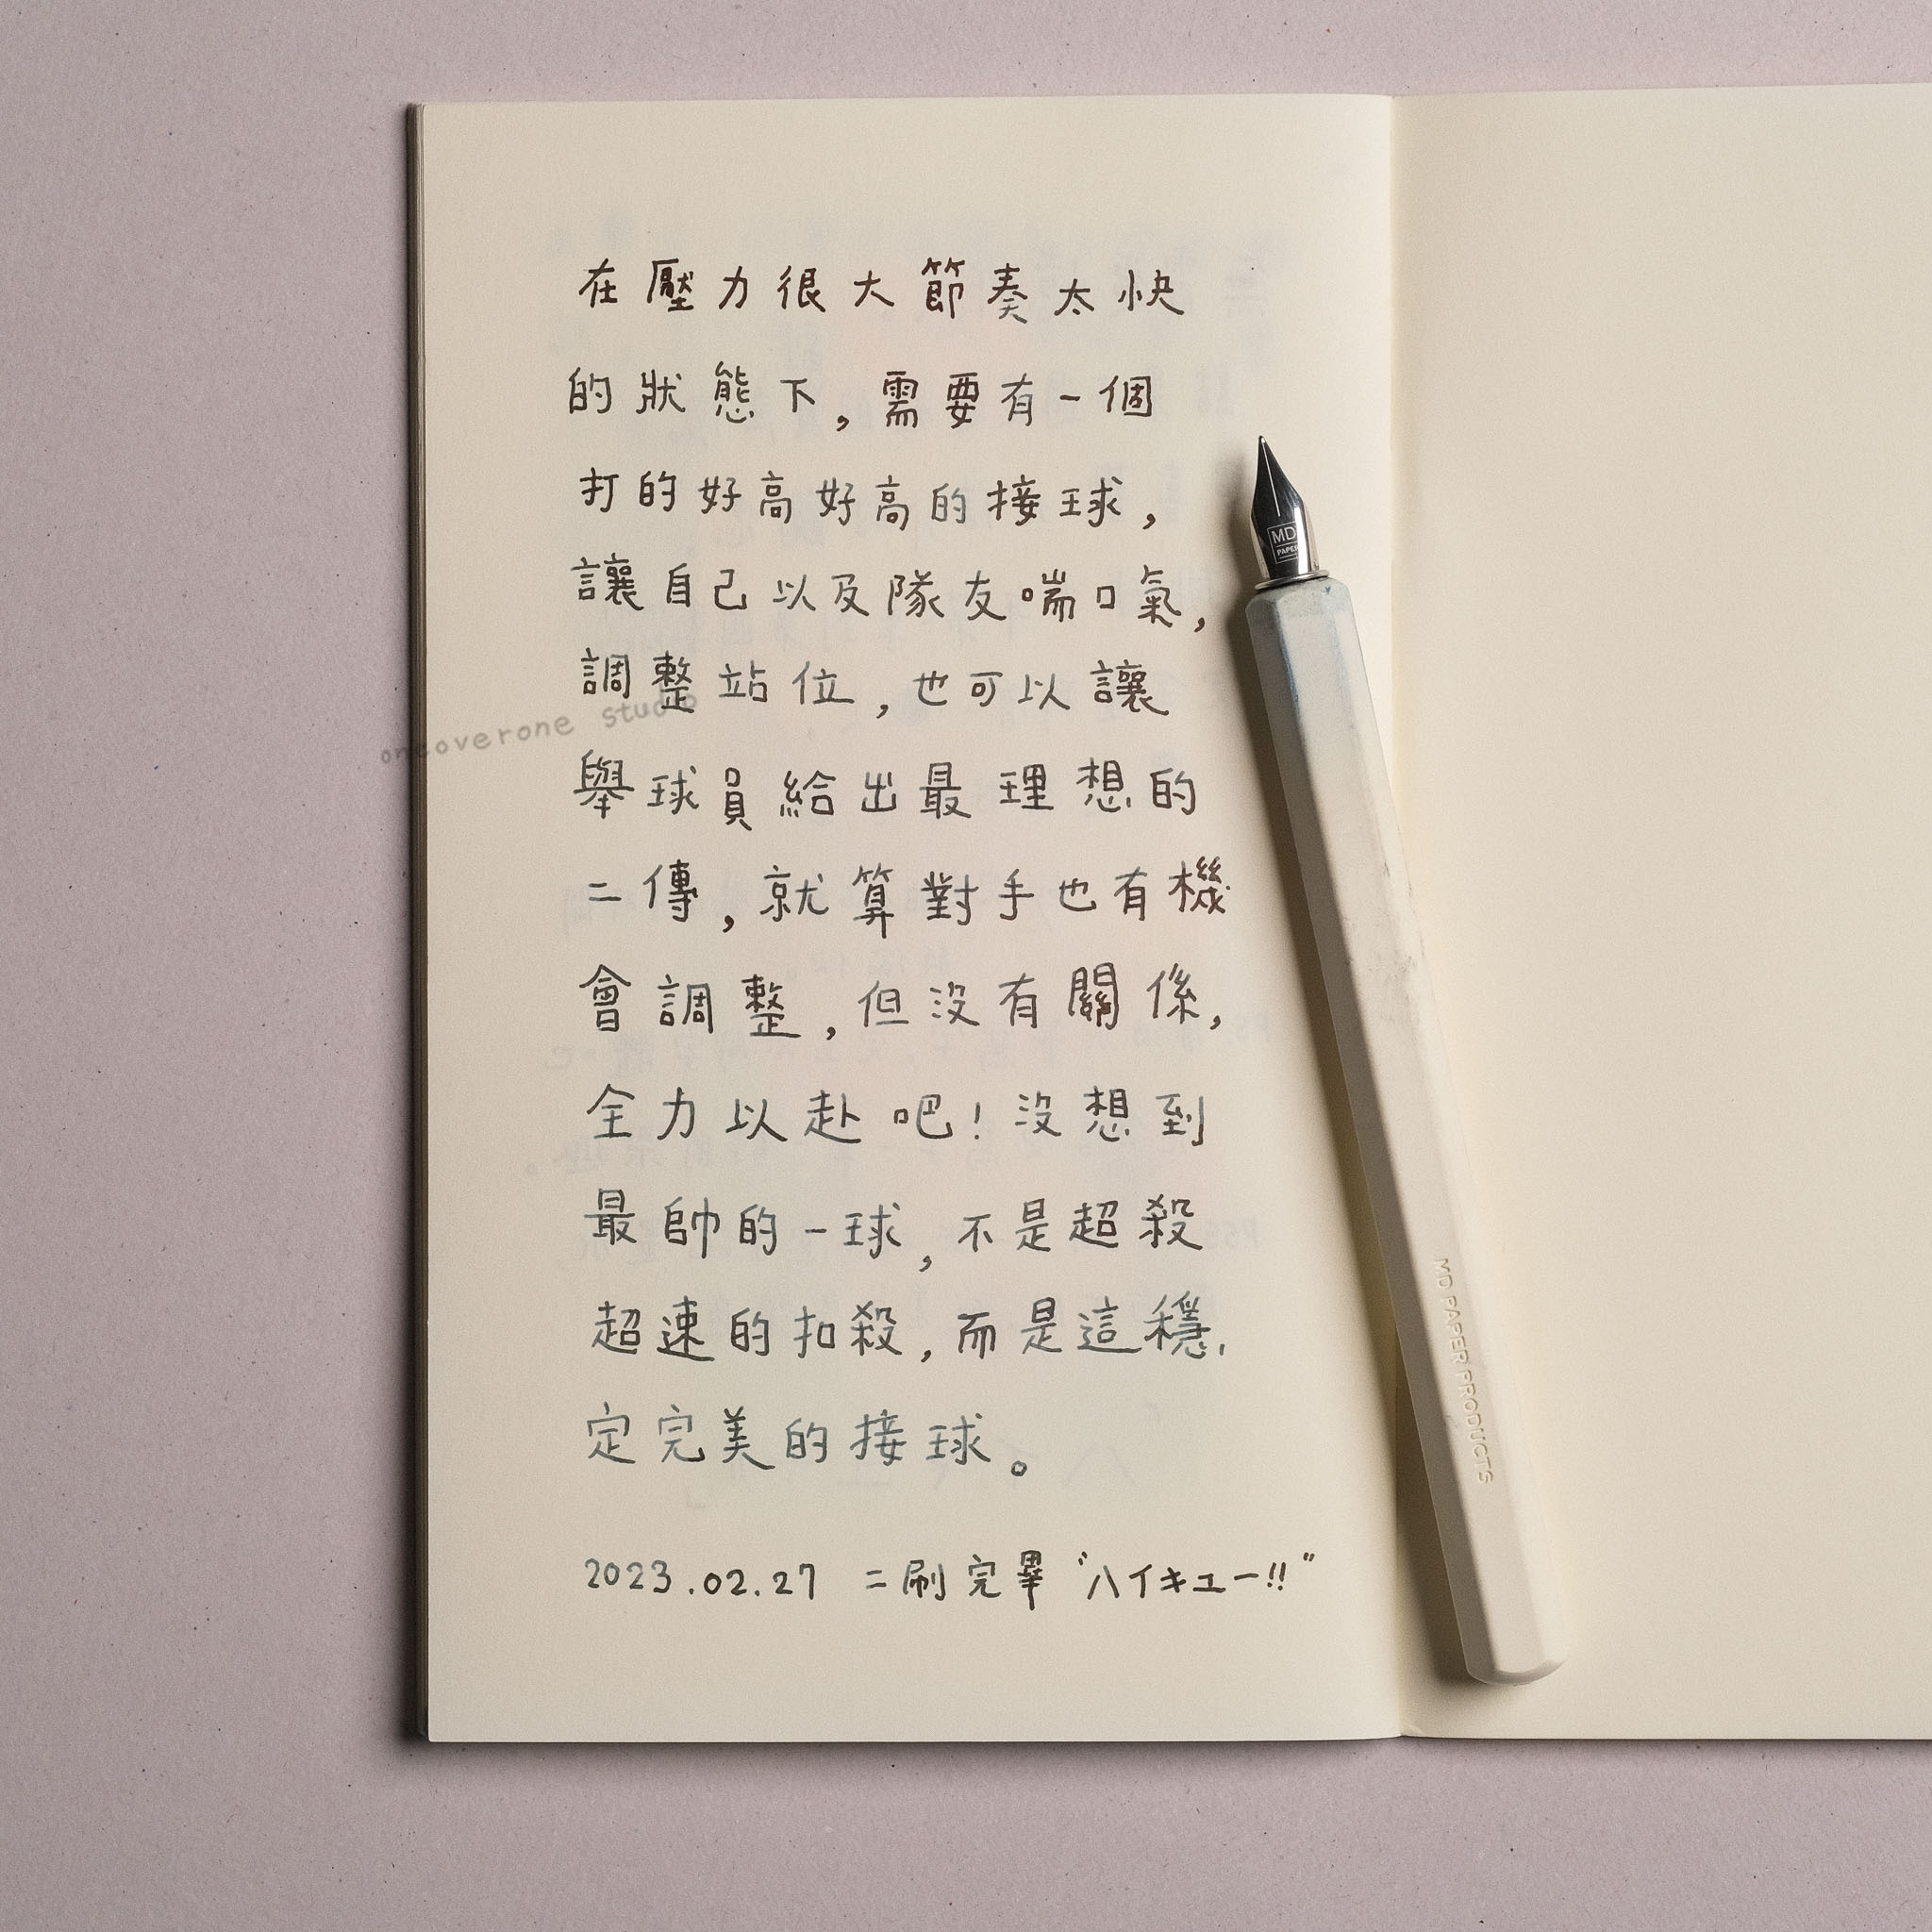 在壓力很大節奏太快
的狀態下,需要有一個
打的好高好高的接球,
讓自己以及隊友喘口氣,
調整站位,也可以讓
舉球員給出最理想的
二傳,就算對手也有機
會調整,但沒有關係,
全力以赴吧!沒想到
最帥的一球,不是超殺
超速的扣殺,而是這穩
定完美的接球。
2023.02.27 二刷完畢 "ハイキュー!!"
oncoverone studio
MD
PAPER
MD PAPER PRODUCTS